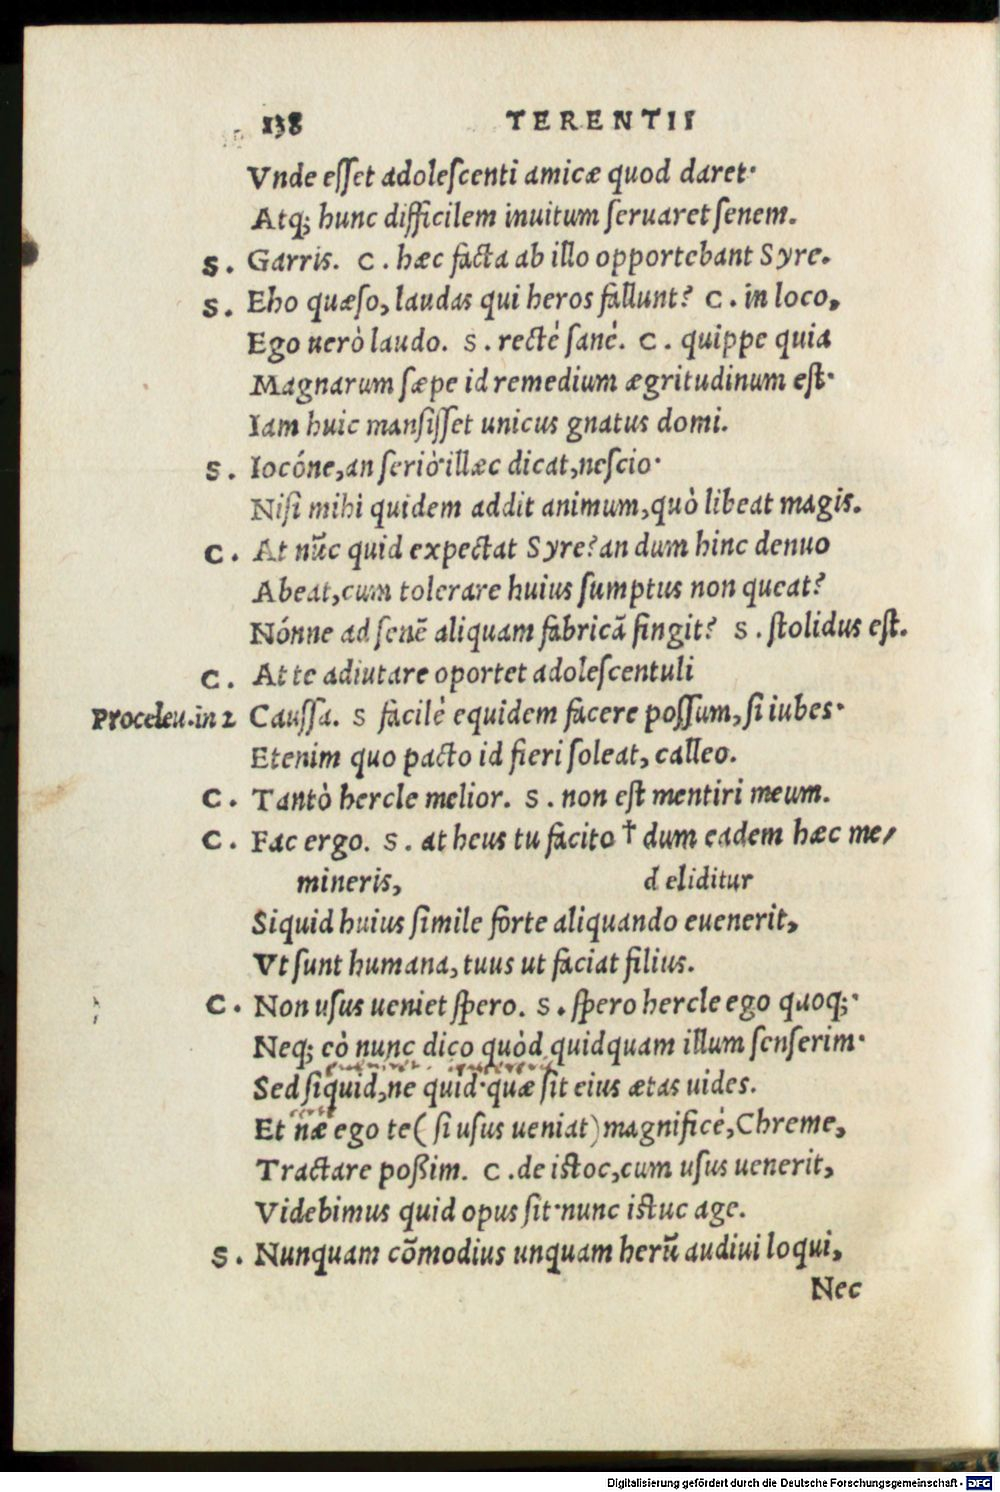 138 TERENTII
Vnde eſſet adoleſcenti amicæ quod daret·
Atq; hunc difficilem inuitum ſeruaret ſenem.
S. Garris. C. hæc facta ab illo opportebant Syre.
S. Eho quæſo, laudas qui heros fallunt? C. in loco,
Ego uerò laudo. S. rectè ſanè. C. quippe quia
Magnarum ſæpe id remedium ægritudinum eſt·
Iam huic manſiſſet unicus gnatus domi.
S. Iocóne, an ſeriò illæc dicat, neſcio·
Niſi mihi quidem addit animum, quò libeat magis.
C. At nūc quid expectat Syre? an dum hinc denuo
Abeat, cum tolerare huius ſumptus non queat?
Nónne ad ſenē aliquam fabricā fingit? S. ſtolidus eſt.
C. At te adiutare oportet adoleſcentuli
Proceleu.in 2 Cauſſa. S facilè equidem facere poſſum, ſi iubes·
Etenim quo pacto id fieri ſoleat, calleo.
C. Tantò hercle melior. S. non eſt mentiri meum.
C. Fac ergo. S. at heus tu facito † dum eadem hæc me/
mineris, d eliditur
Siquid huius ſimile forte aliquando euenerit,
Vt ſunt humana, tuus ut faciat filius.
C. Non uſus ueniet ſpero. S. ſpero hercle ego quoq;·
Neq; eò nunc dico quòd quidquam illum ſenſerim·
Sed ſiquid, ne quid· quæ ſit eius ætas uides.
certe
Et næ ego te (ſi uſus ueniat) magnificè, Chreme,
Tractare poßim. C. de iſtoc, cum uſus uenerit,
Videbimus quid opus ſit· nunc iſtuc age.
S. Nunquam cōmodius unquam herū audiui loqui,
Nec
Digitalisierung gefördert durch die Deutsche Forschungsgemeinschaft - DFG